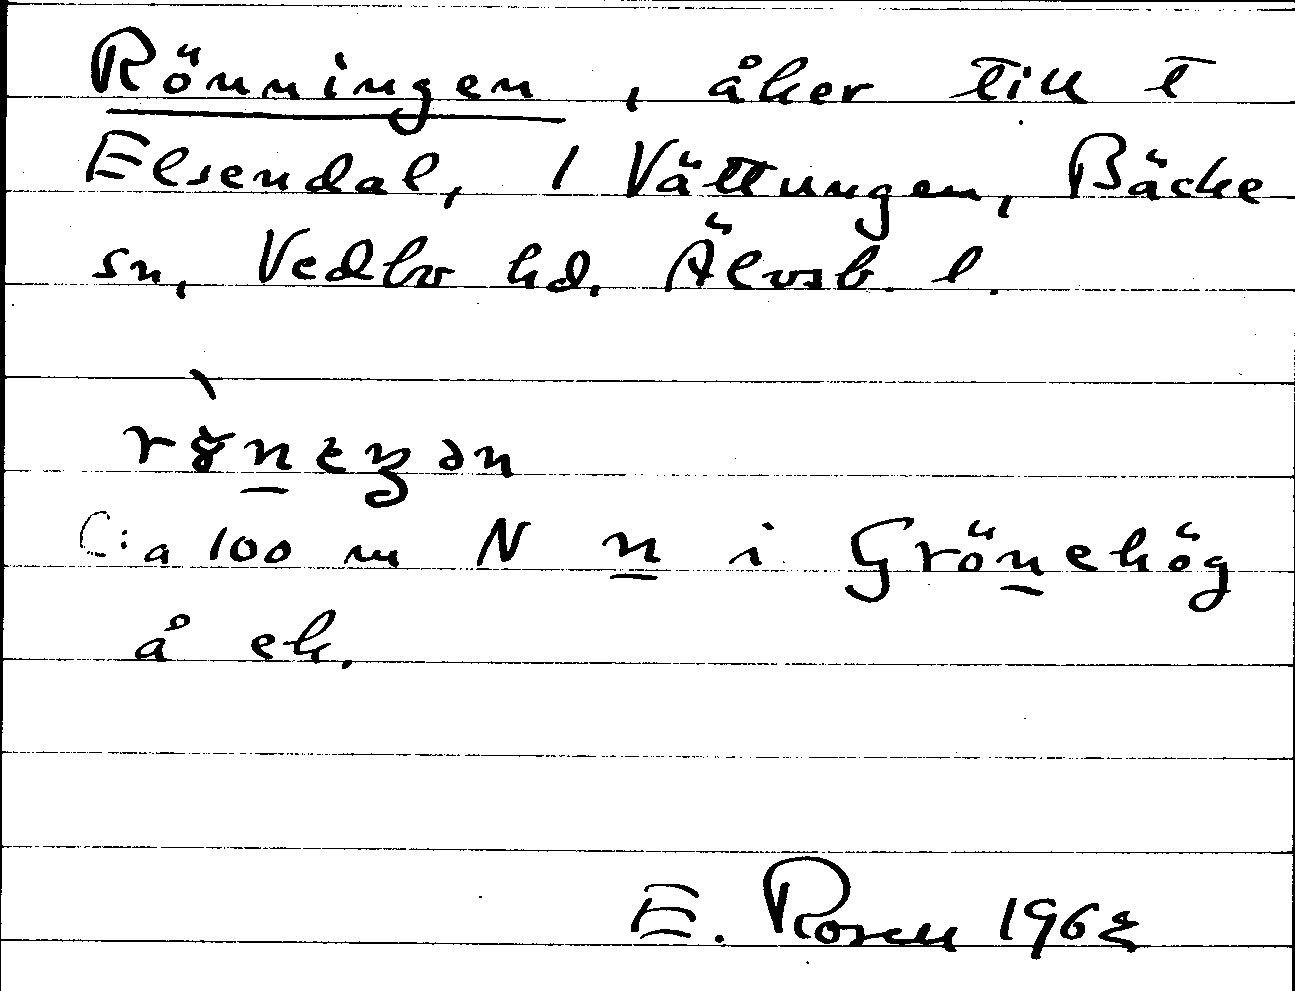 Rönningen, åker till t
Elsendal, 1 Vättungen, Bäcke
sn, Vedbo hd. Älvsb. l.
C:a 100 m N n i Grönehög
å ek.
E. Rosen 1962